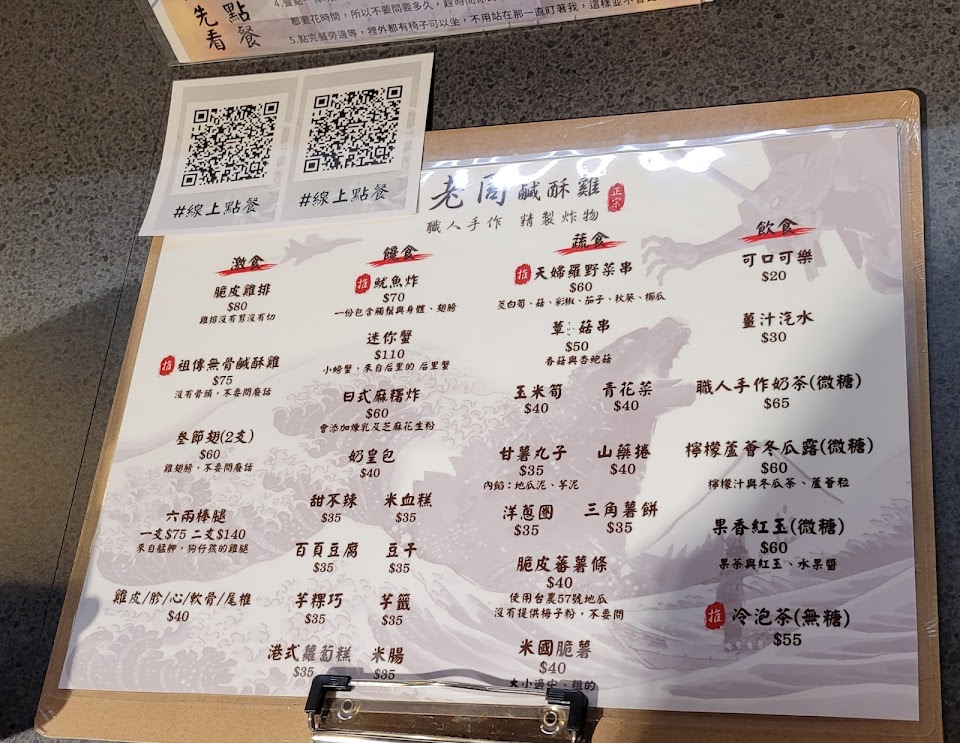 先看
點餐
都要花時間，所以不要問要多久，
5.點完餐旁邊等，裡外都有椅子可以坐，不用站在那一直盯著我，這樣並不會
#線上點餐
#線上點餐
老周鹹酥雞 正宗
職人手作 精製炸物
激食
脆皮雞排
$80
雞排沒有剪沒有切
推 祖傳無骨鹹酥雞
$75
沒有骨頭，不要問廢話
叁節翅(2支)
$60
雞翅膀，不要問廢話
六兩棒腿
一支$75 二支$140
來自艋舺，狗仔孩的雞腿
雞皮/胗/心/軟骨/尾椎
$40
饞食
推 魷魚炸
$70
一份包含觸鬚與身體、翅膀
迷你蟹
$110
小螃蟹，來自后里的 后里蟹
日式麻糬炸
$60
會添加煉乳及芝麻花生粉
奶皇包
$40
甜不辣 米血糕
$35 $35
百頁豆腐 豆干
$35 $35
芋粿巧 芋籤
$35 $35
港式蘿蔔糕 米腸
$35 $35
蔬食
推 天婦羅野菜串
$60
茭白筍、菇、彩椒、茄子、秋葵、櫛瓜
蕈菇串
$50
香菇與杏鮑菇
玉米筍 青花菜
$40 $40
甘薯丸子 山藥捲
$35 $40
內餡：地瓜泥、芋泥
洋蔥圈 三角薯餅
$35 $35
脆皮蕃薯條
$40
使用台農57號地瓜
沒有提供梅子粉，不要問
米國脆薯
$40
大小適中、粗的
飲食
可口可樂
$20
薑汁汽水
$30
職人手作奶茶(微糖)
$65
檸檬蘆薈冬瓜露(微糖)
$60
檸檬汁與冬瓜茶、蘆薈粒
果香紅玉(微糖)
$60
果茶與紅玉、水果醬
推 冷泡茶(無糖)
$55